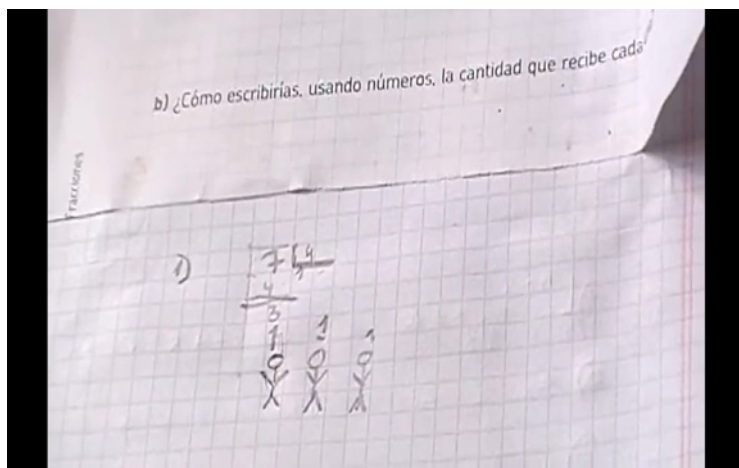 b) ¿Cómo escribirías, usando números, la cantidad que recibe cada
Fracciones
1)
7 4
4
3
1 1 1